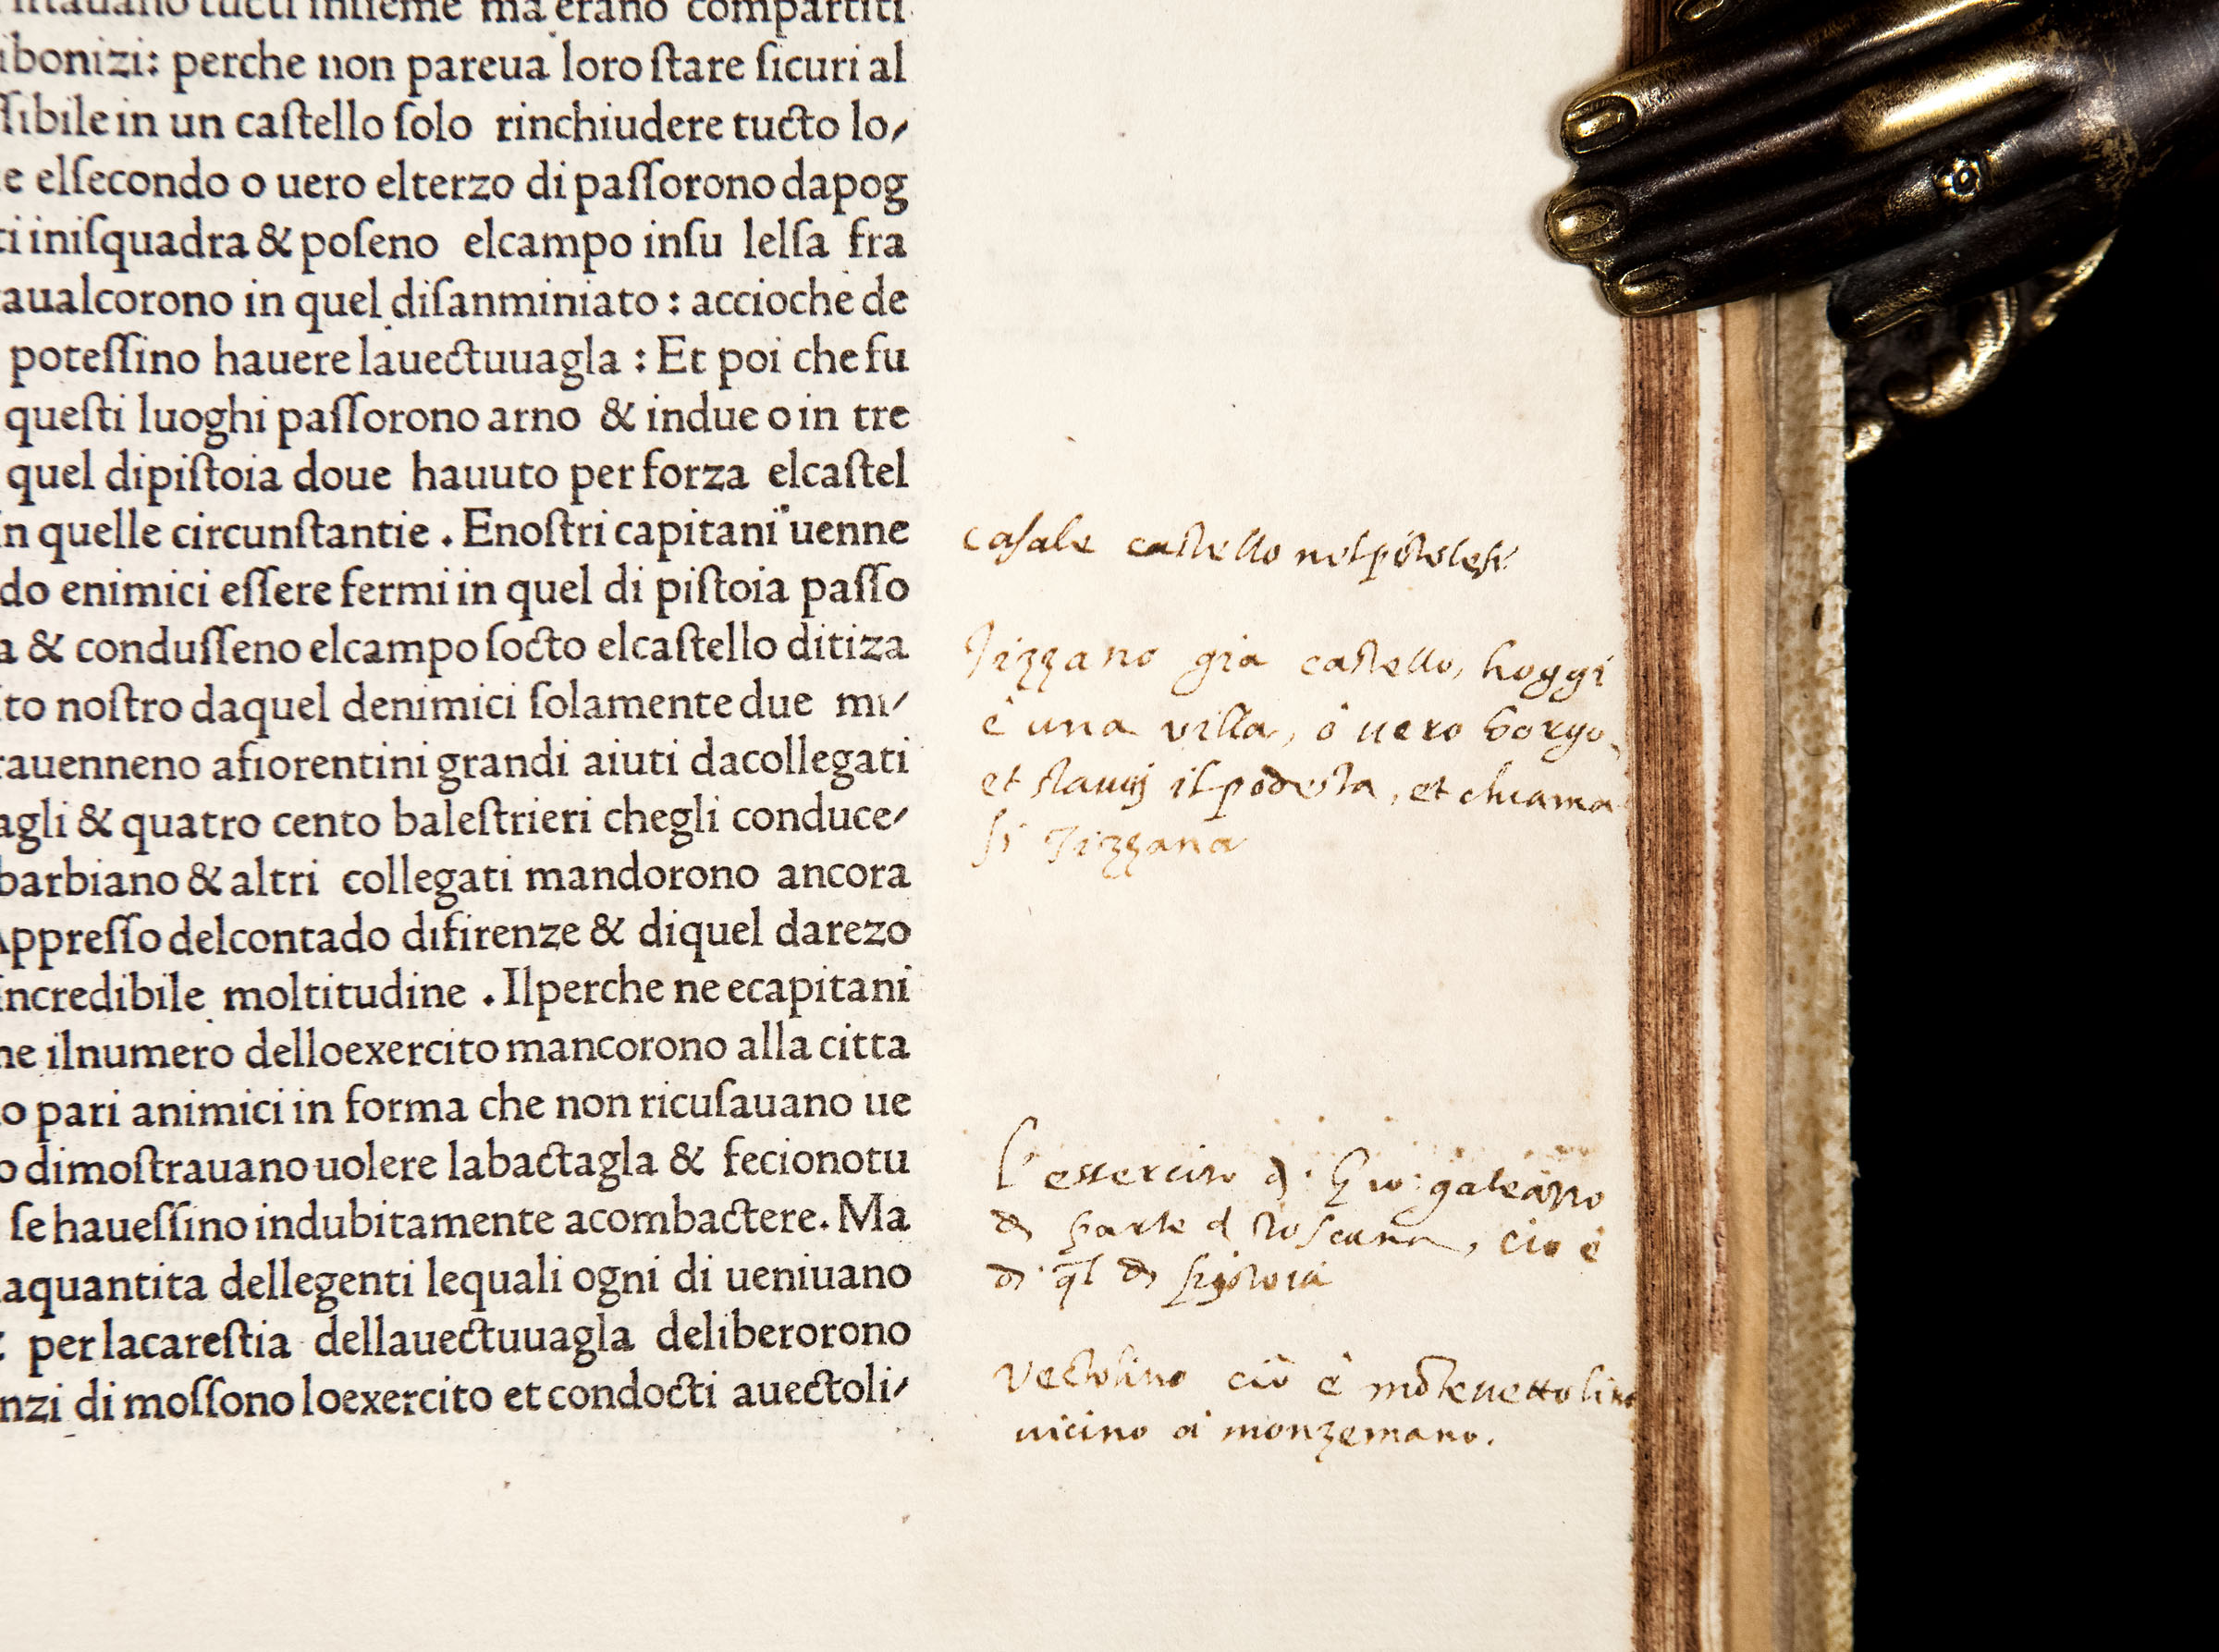 ma erano compartiti
ibonizi: perche non pareua loro ſtare ſicuri al
ſſibile in un caſtello ſolo rinchiudere tucto lo/
e elſecondo o uero elterzo di paſſorono dapog
ti iniſquadra & poſeno elcampo inſu lelſa fra
caualcorono in quel diſanminiato : accioche de
poteſſino hauere lauectuuagla : Et poi che fu
queſti luoghi paſſorono arno & indue o in tre
quel dipiſtoia doue hauuto per forza elcaſtel
in quelle circunſtantie . Enoſtri capitani uenne
do enimici eſſere fermi in quel di piſtoia paſſo
a & conduſſeno elcampo ſocto elcaſtello ditiza
ito noſtro daquel denimici ſolamente due mi/
rauenneno afiorentini grandi aiuti dacollegati
agli & quatro cento baleſtrieri chegli conduce/
barbiano & altri collegati mandorono ancora
Appreſſo delcontado difirenze & diquel darezo
incredibile moltitudine . Ilperche ne ecapitani
ne ilnumero delloexercito mancorono alla citta
o pari animici in forma che non ricuſauano ue
o dimoſtrauano uolere labactagla & fecionotu
ſe haueſſino indubitamente acombactere. Ma
aquantita dellegenti lequali ogni di ueniuano
: per lacareſtia dellauectuuagla deliberorono
nzi di moſſono loexercito et condocti auectoli/
caſale castello nel piſtoleſe
Tizzano gia castello, hoggi
è una villa, ò uero borgo,
et stauuj il podesta, et chiama
ſi Tizzana
l'essercito di Gio: galeazzo
di parte d toſcana, cio è
di ql di piſtoia
Vectolino ciò è mōteuettolino
uicino a monzemano.